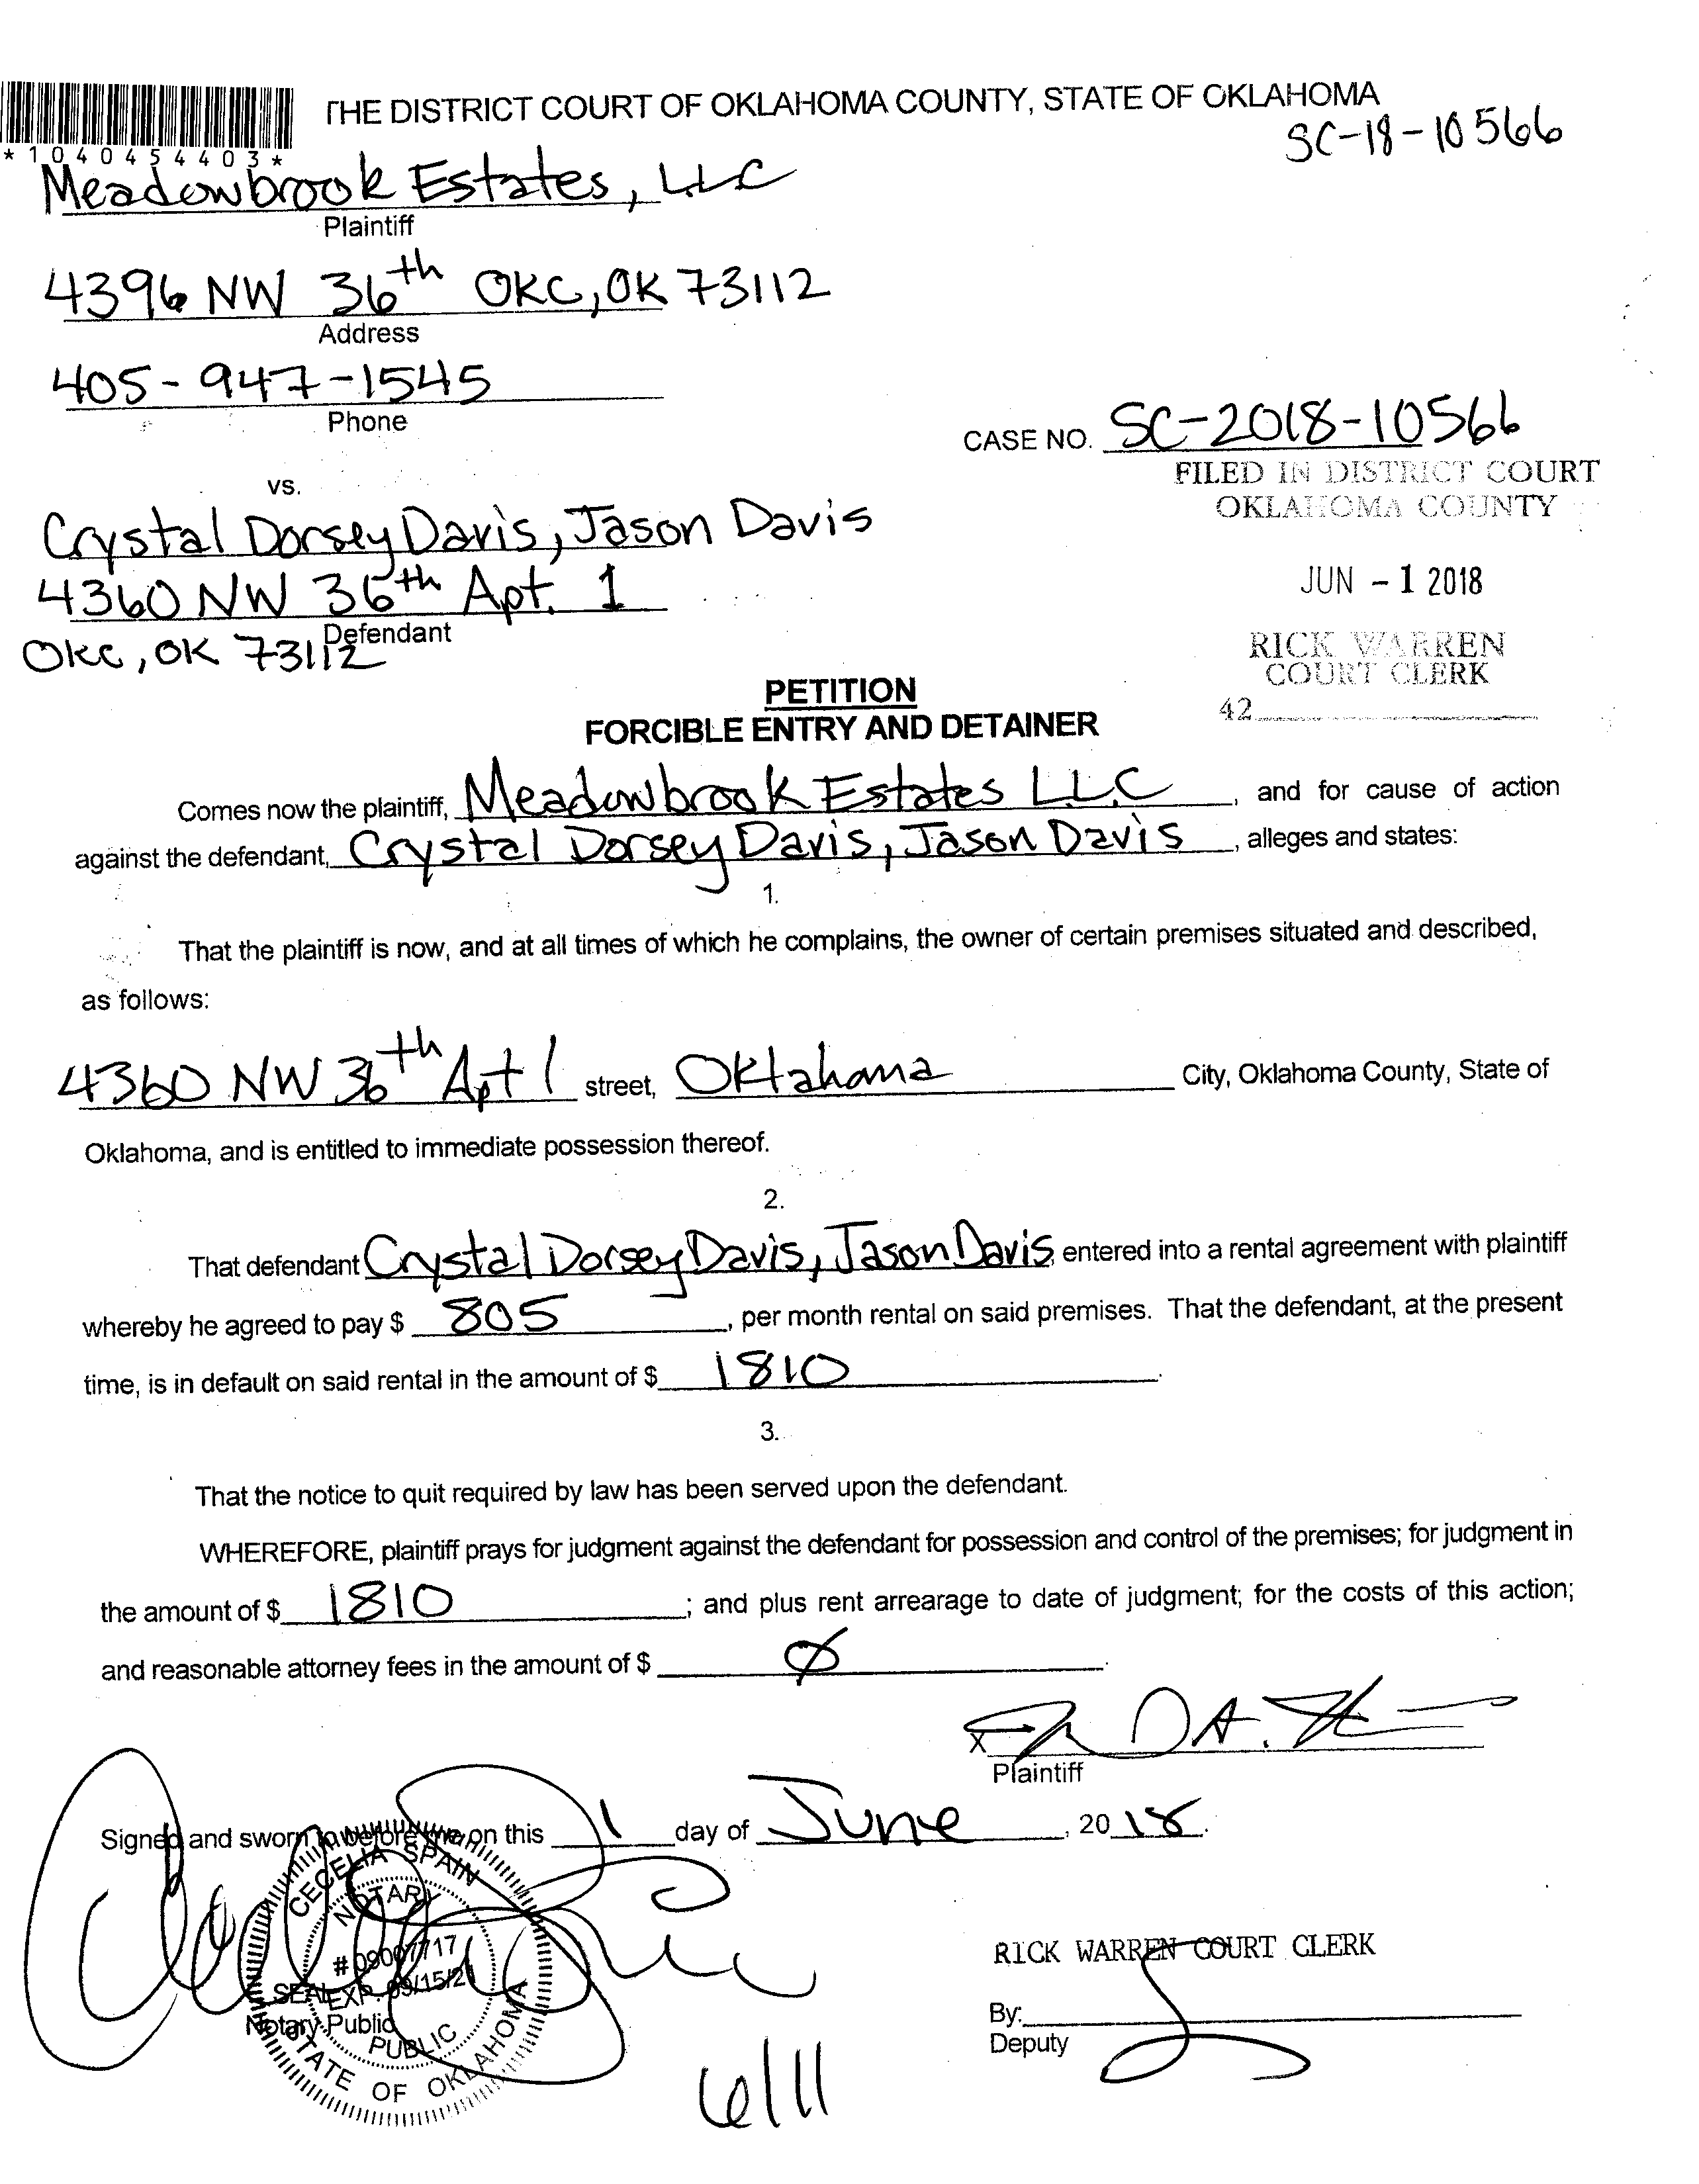 THE DISTRICT COURT OF OKLAHOMA COUNTY, STATE OF OKLAHOMA
SC-18-10566
*1040454403*
Meadowbrook Estates, LLC
Plaintiff
4396 NW 36th OKC, OK 73112
Address
405-947-1545
Phone
CASE NO. SC-2018-10566
FILED IN DISTRICT COURT
OKLAHOMA COUNTY
vs.
Crystal Dorsey Davis, Jason Davis
4360 NW 36th Apt. 1
JUN -1 2018
Defendant
OKC, OK 73112
RICK WARREN
COURT CLERK
42
PETITION
FORCIBLE ENTRY AND DETAINER
Comes now the plaintiff, Meadowbrook Estates LLC, and for cause of action
against the defendant, Crystal Dorsey Davis, Jason Davis, alleges and states:
1.
That the plaintiff is now, and at all times of which he complains, the owner of certain premises situated and described,
as follows:
4360 NW 36th Apt 1 street, Oklahoma City, Oklahoma County, State of
Oklahoma, and is entitled to immediate possession thereof.
2.
That defendant Crystal Dorsey Davis, Jason Davis, entered into a rental agreement with plaintiff
whereby he agreed to pay $ 805, per month rental on said premises. That the defendant, at the present
time, is in default on said rental in the amount of $ 1810.
3.
That the notice to quit required by law has been served upon the defendant.
WHEREFORE, plaintiff prays for judgment against the defendant for possession and control of the premises; for judgment in
the amount of $ 1810; and plus rent arrearage to date of judgment; for the costs of this action;
and reasonable attorney fees in the amount of $ Ø.
X
Plaintiff
Signed and sworn to before me on this 1 day of June, 2018.
CECELIA SPAIN
NOTARY
# 09007717
SEAL EXP. 09/15/21
Notary Public
PUBLIC
STATE OF OKLAHOMA
RICK WARREN COURT CLERK
By:
Deputy
6/11